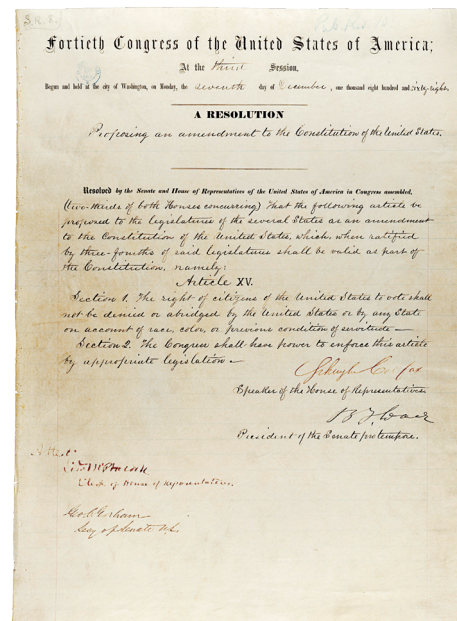 S.R.8.
Fortieth Congress of the United States of America;
At the third Session,
Begun and held at the city of Washington, on Monday, the seventh day of December, one thousand eight hundred and sixty-eight.
A RESOLUTION
Proposing an amendment to the Constitution of the United States.
Resolved by the Senate and House of Representatives of the United States of America in Congress assembled,
(two-thirds of both Houses concurring) That the following article be
proposed to the legislatures of the several States as an amendment
to the Constitution of the United States, which, when ratified
by three-fourths of said legislatures shall be valid as part of
the Constitution, namely:
Article XV.
Section 1. The right of citizens of the United States to vote shall
not be denied or abridged by the United States or by any State
on account of race, color, or previous condition of servitude—
Section 2. The Congress shall have power to enforce this article
by appropriate legislation—
Schuyler Colfax
Speaker of the House of Representatives.
B F Wade
President of the Senate pro tempore.
Attest:
Clerk of House of Representatives.
Geo. C. Gorham
Secy of Senate U.S.